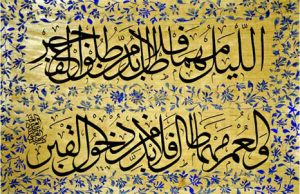 الليل مهما طال فلا بد من طلوع الفجر
والعمر مهما طال فلا بد من دخول القبر